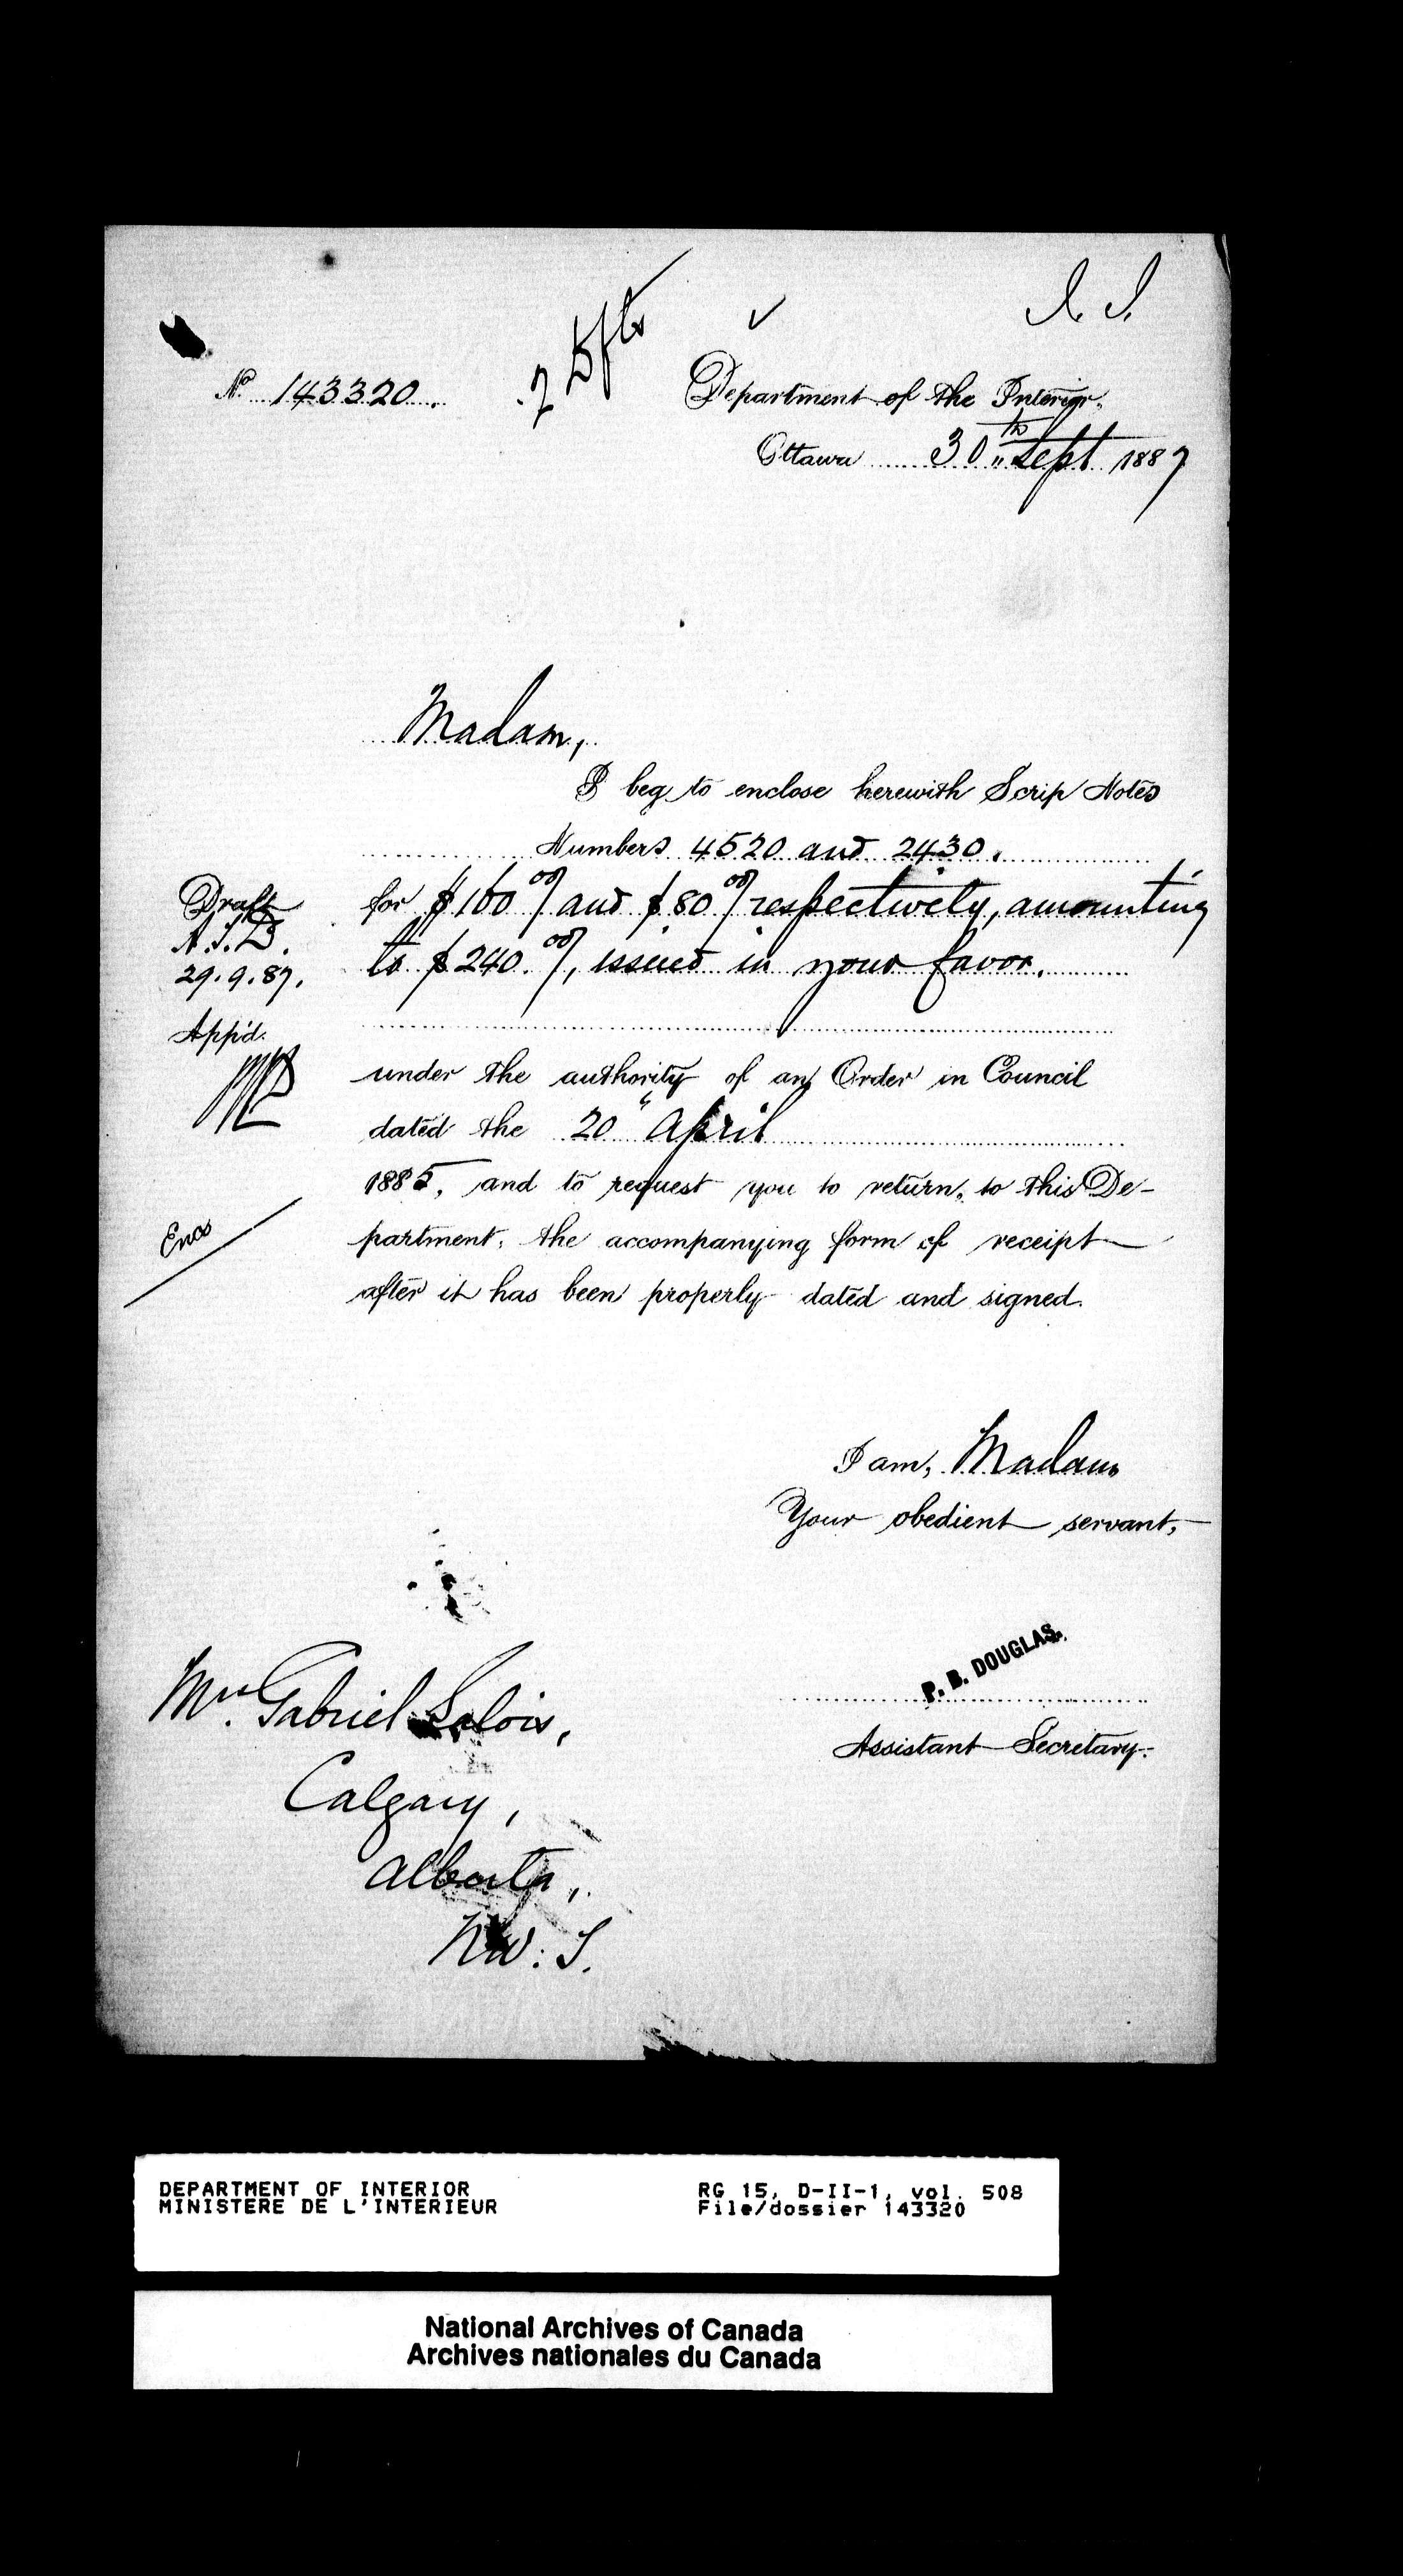 2 Dfts
Nº 143320.
Department of the Interior,
Ottawa 30th Sept 1887
Madam,
I beg to enclose herewith Scrip Notes
Numbers 4520 and 2430.
for $160 00/ and $80 00/ respectively, amounting
to $240. 00/, issued in your favor.
Draft
A.S.D.
29.9.87.
App'd.
under the authority of an Order in Council
dated the 20" April
1885, and to request you to return, to this De-
partment, the accompanying form of receipt
after it has been properly dated and signed.
Encs
I am, Madam
Your obedient servant,
P. B. DOUGLAS.
Assistant Secretary.
Mrs. Gabriel Salois,
Calgary,
Alberta,
N.W.T.
DEPARTMENT OF INTERIOR
MINISTERE DE L'INTERIEUR
RG 15, D-II-1, vol. 508
File/dossier 143320
National Archives of Canada
Archives nationales du Canada